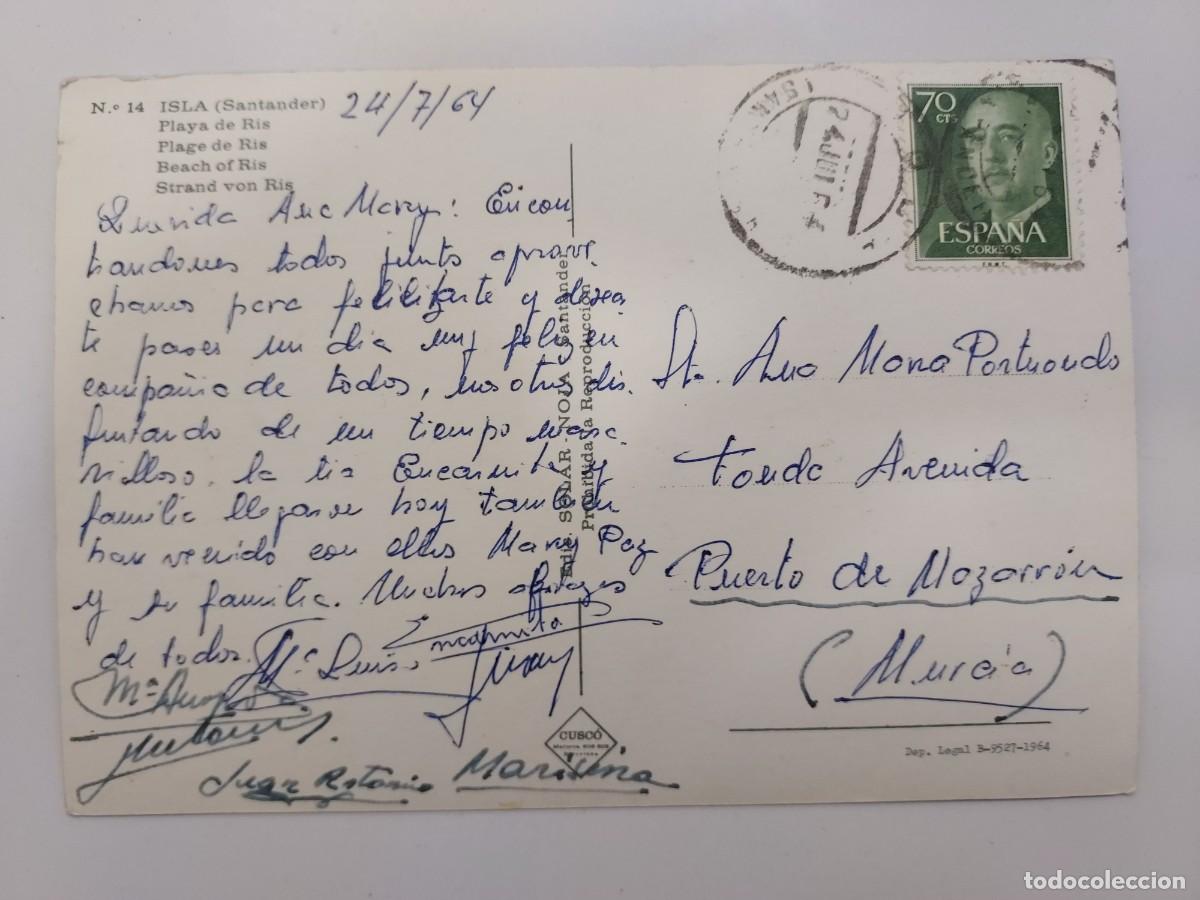 N.º 14 ISLA (Santander) 24/7/64
Playa de Ris
Plage de Ris
Beach of Ris
Strand von Ris
Querida Ana Mary: Encon
trandones todos junto aprove
chamos para felicitarte y desea
te pases un dia muy feliz en
compañia de todos, nosotros dis
frutando de un tiempo mara
villoso. la tia Encarnita y
familia llegaron hoy también
han venido con ellos Mary Paz
y su familia. Muchos abrazos
de todos.
Encarnita
Mª Luisa
Mª Amparo
Antonio
Juan Antonio
Marisina
Edic. SOLAR - NOJA (Santander)
Prohibida la Reproducción
CUSCÓ
70 CTS
ESPAÑA
CORREOS
24 JUL 64
Sta. Ana Maria Portuondo
Fonda Avenida
Puerto de Mazarrón
(Murcia)
Dep. Legal B-9527-1964
todocoleccion